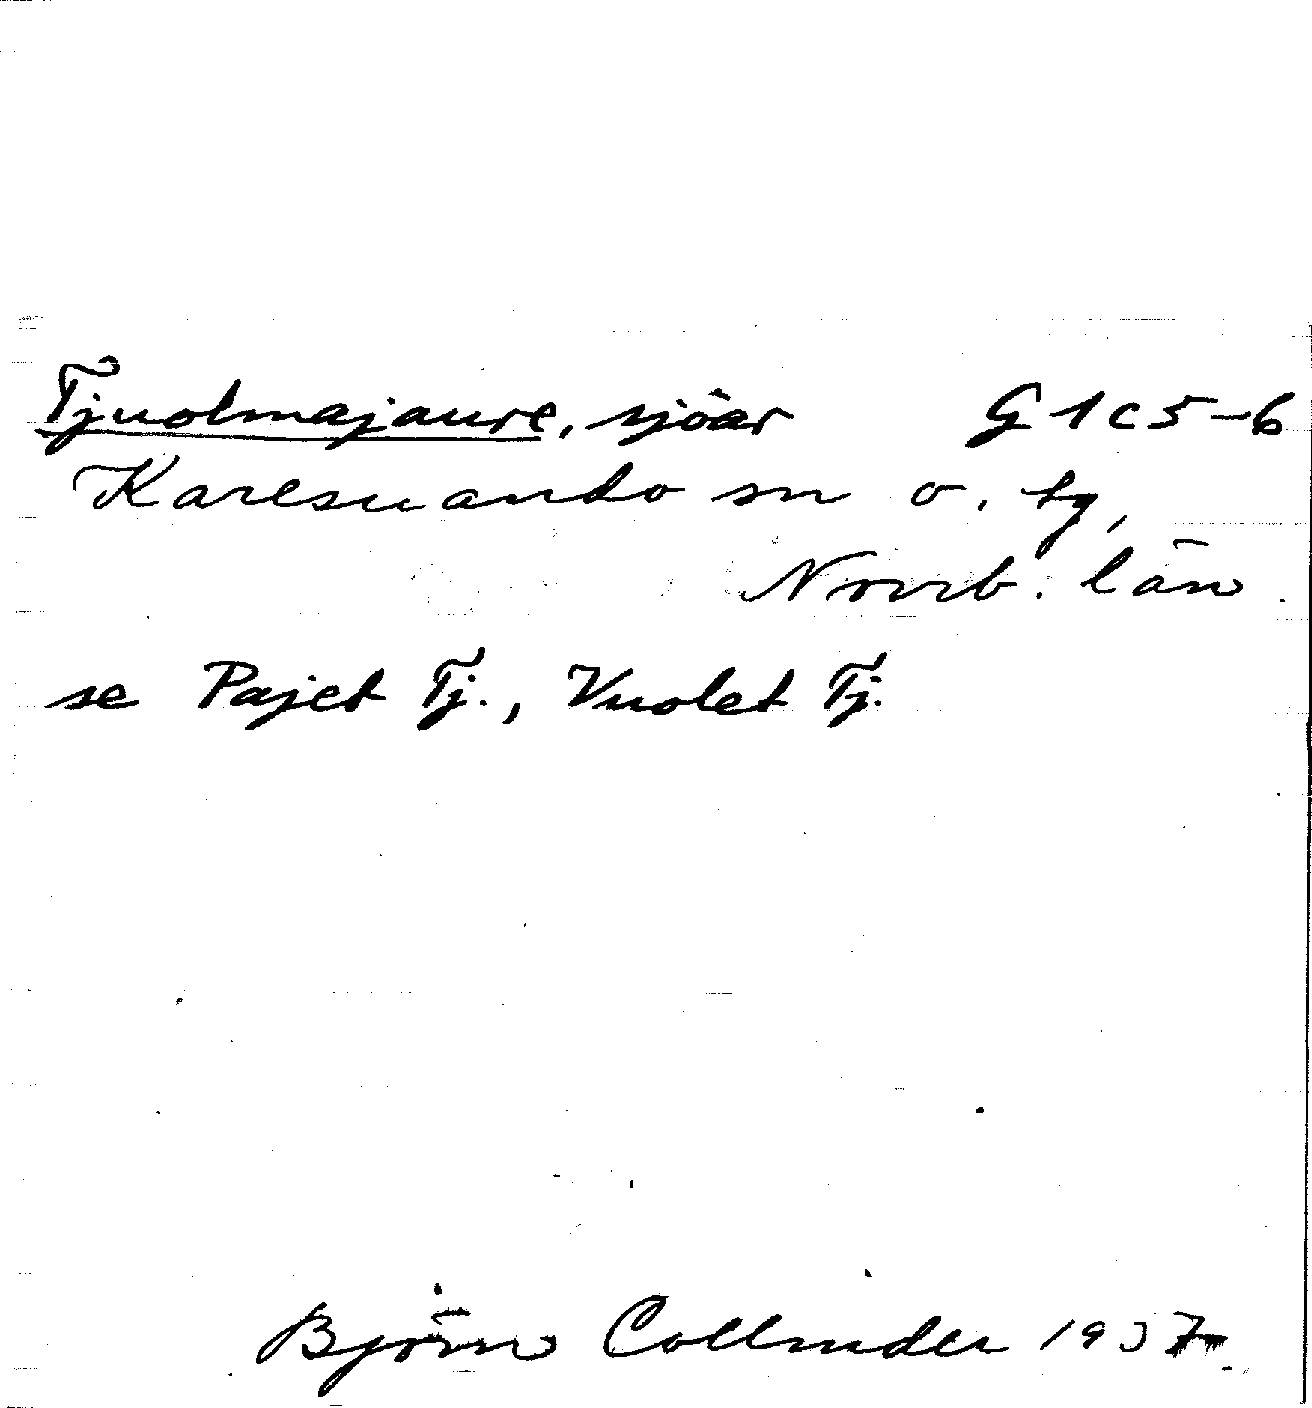 Tjuolmajaure, sjöar G 1 c 5-6
Karesuando sn o. tg,
Norrb. län
se Pajet Tj., Vuolet Tj.
Björn Collinder 1937